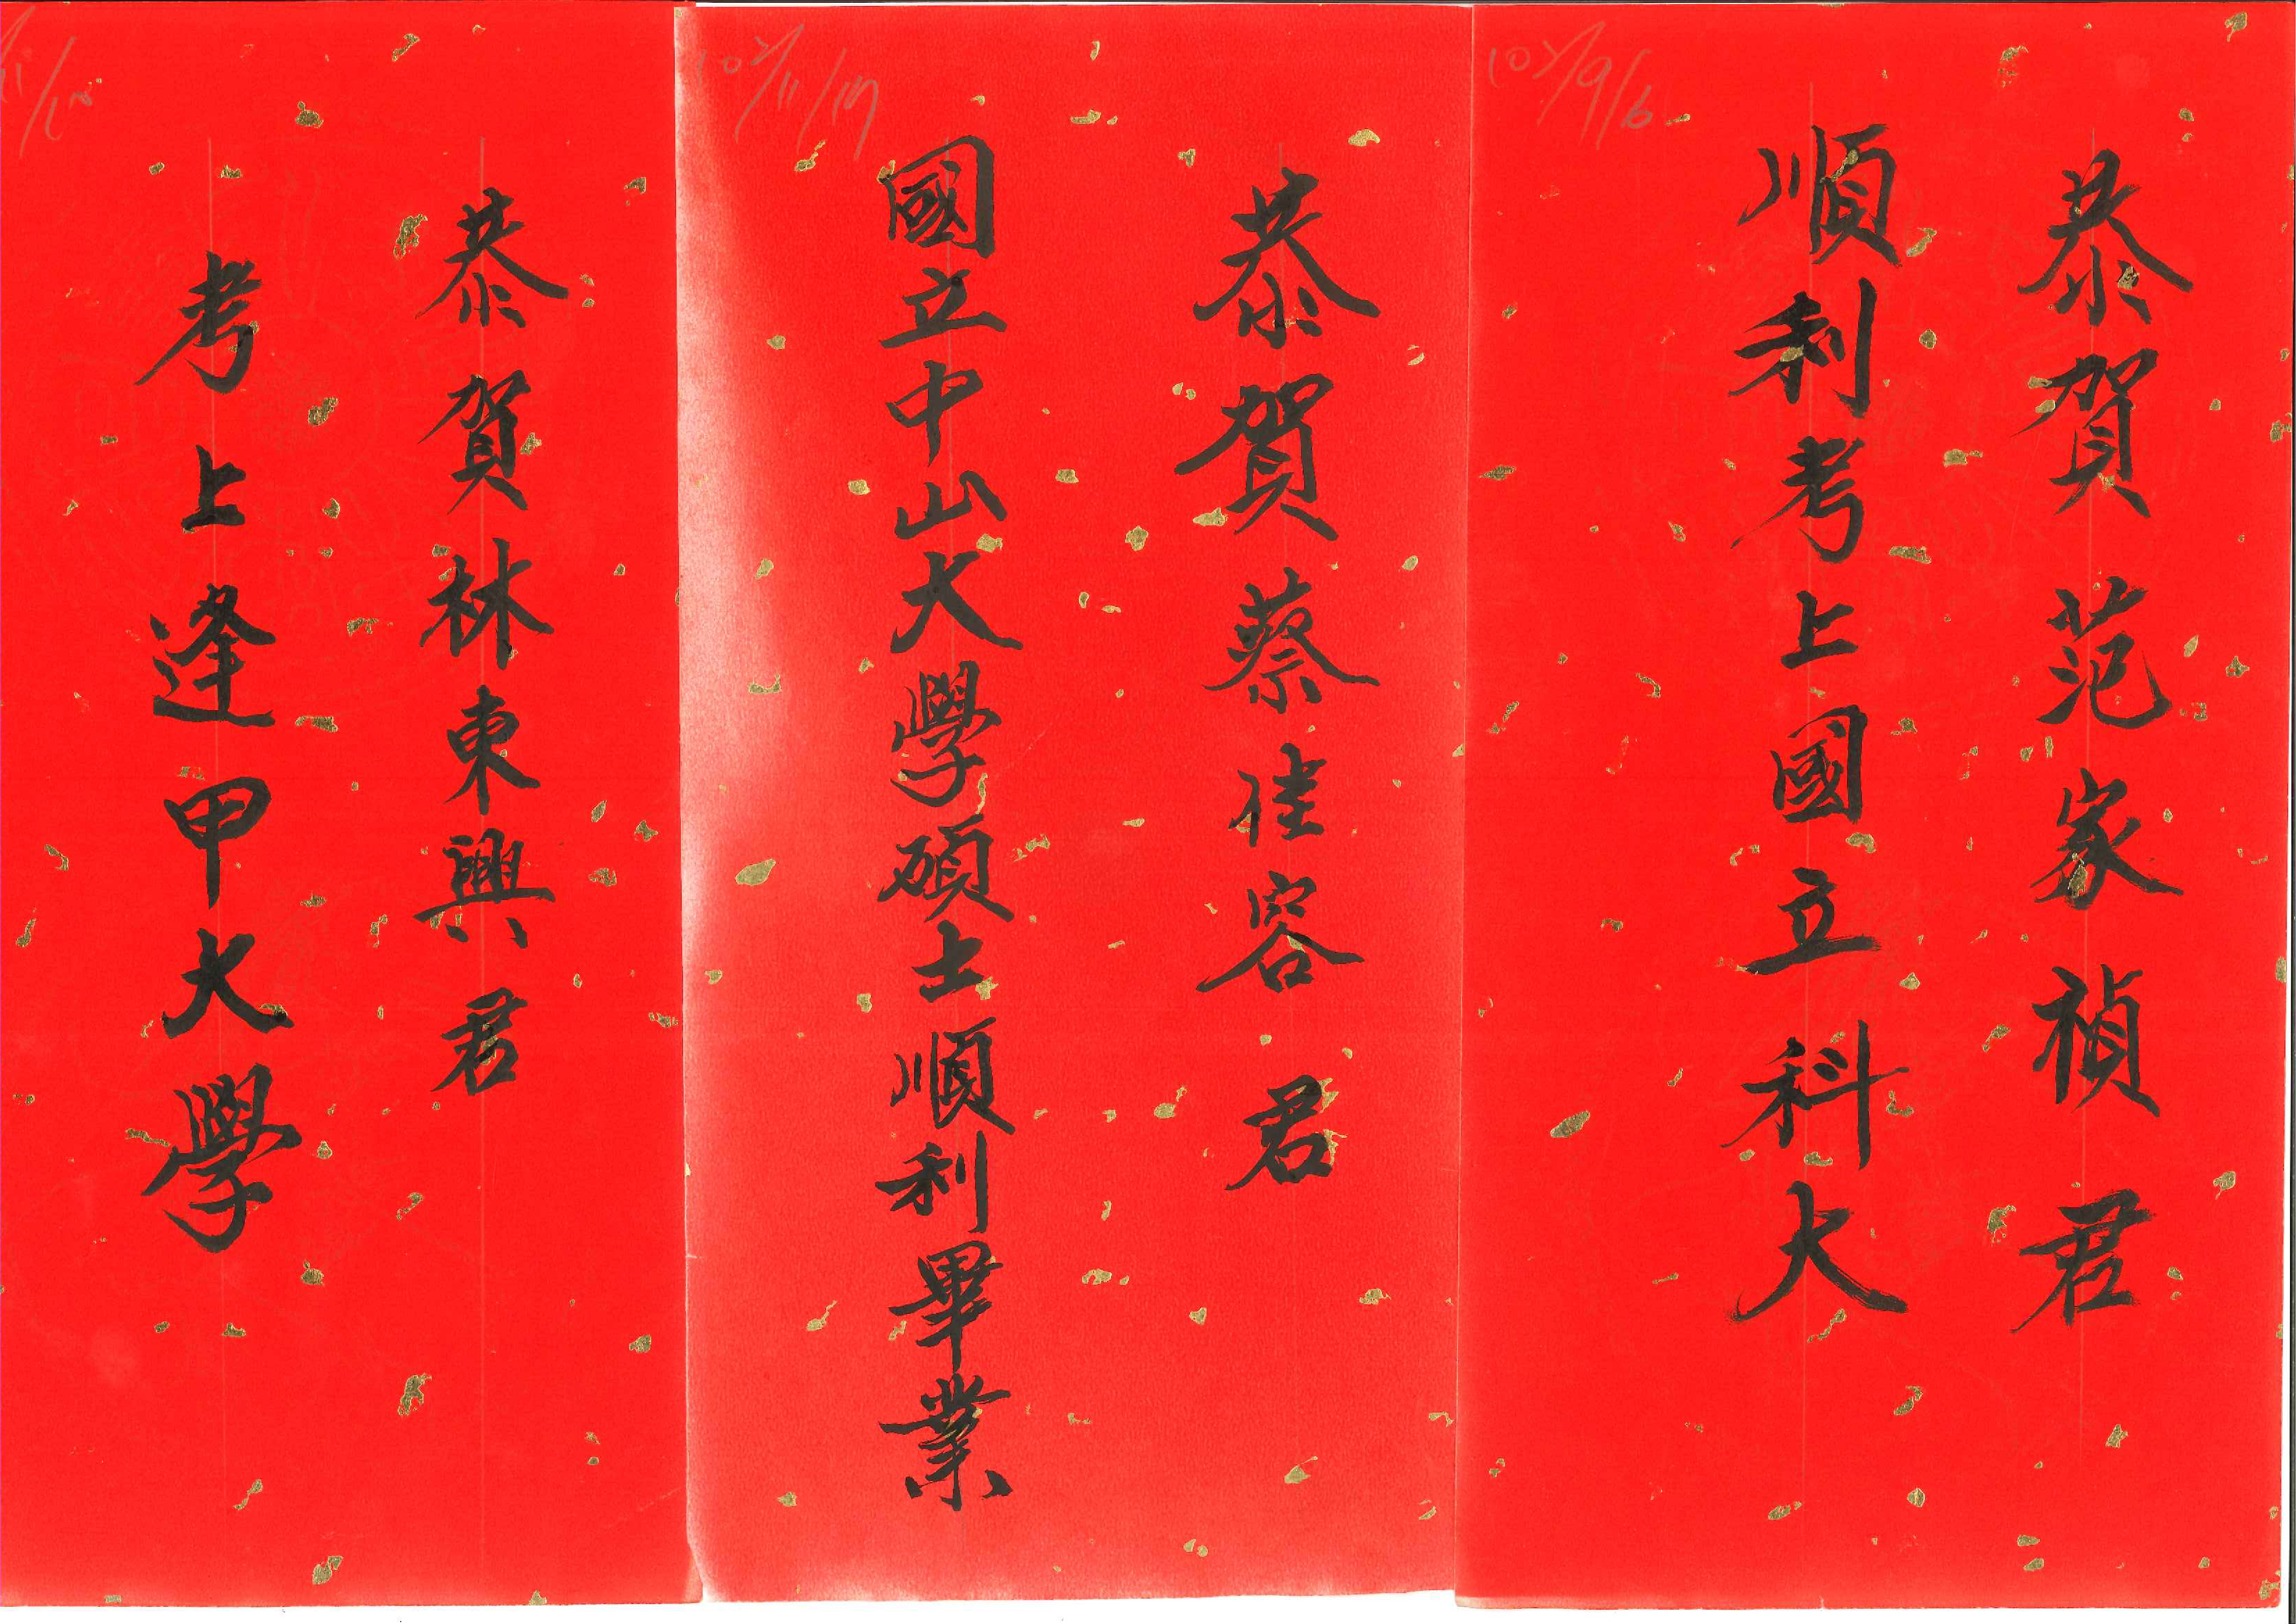 102/9/6
恭賀范家禎君
順利考上國立科大
102/11/17
恭賀蔡佳容君
國立中山大學碩士順利畢業
恭賀林東興君
考上逢甲大學